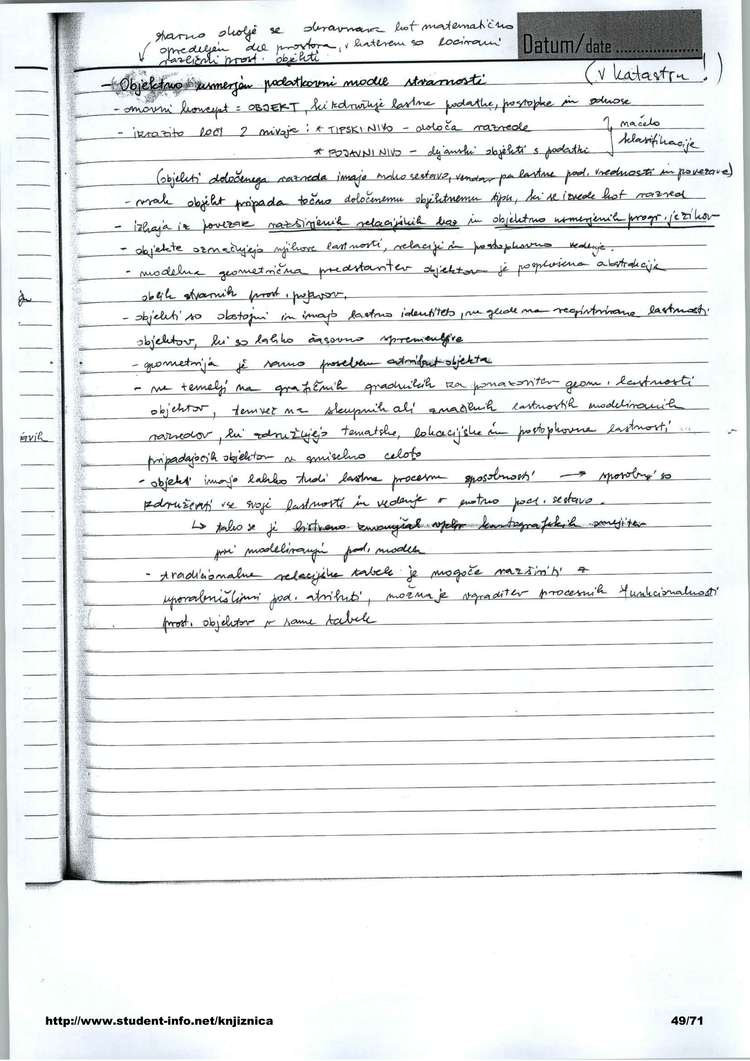 stvarno okolje se obravnava kot matematično
opredeljen del prostora, v katerem so locirani
različni prost. objekti
Datum/date ....................
(v katastru!)
- Objektno usmerjen podatkovni model stvarnosti
- osnovni koncept = OBJEKT, ki združuje lastne podatke, postopke in odnose
- izrazito loči 2 nivoja: * TIPSKI NIVO - določa razrede
* POJAVNI NIVO - dejanski objekti s podatki
načelo
klasifikacije
(objekti določenega razreda imajo enako sestavo, vendar pa lastne pod. vrednosti in povezave)
- vsak objekt pripada točno določenemu objektnemu tipu, ki se izvede kot razred
- izhaja iz povezave razširjenih relacijskih baz in objektno usmerjenih progr. jezikov
- objekte označujejo njihove lastnosti, relacije in postopkovno vedenje
- modelna geometrična predstavitev objektov je posplošena abstrakcija
oblik stvarnih prost. pojavov.
- objekti so obstojni in imajo lastno identiteto, ne glede na registrirane lastnosti
objektov, ki so lahko časovno spremenljive
- geometrija je samo poseben atribut objekta
- ne temelji na grafičnih gradnikih za ponazoritev geom. lastnosti
objektov, temveč na skupnih ali značilnih lastnostih modeliranih
razredov, ki združujejo tematske, lokacijske in postopkovne lastnosti
pripadajočih objektov v smiselno celoto
- objekti imajo lahko tudi lastne procesne sposobnosti → sposobni so
združevati vse svoje lastnosti in vedenje v enotno pod. sestavo.
↳ tako se je bistveno zmanjšal vpliv kartografskih omejitev
pri modeliranju pod. modela
- tradicionalne relacijske tabele je mogoče razširiti z
uporabniškimi pod. atributi, možna je vgraditev procesnih funkcionalnosti
prost. objektov v same tabele
http://www.student-info.net/knjiznica
49/71